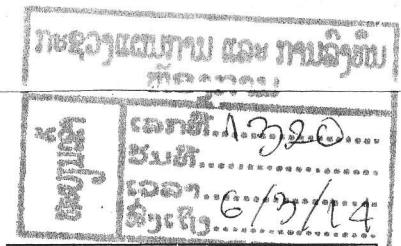 ກະຊວງແຜນການ ແລະ ການລົງທຶນ
ຫ້ອງການ
ເລກທີ 1320
ວັນທີ
ເວລາ
ສົ່ງເຖິງ 6/3/14